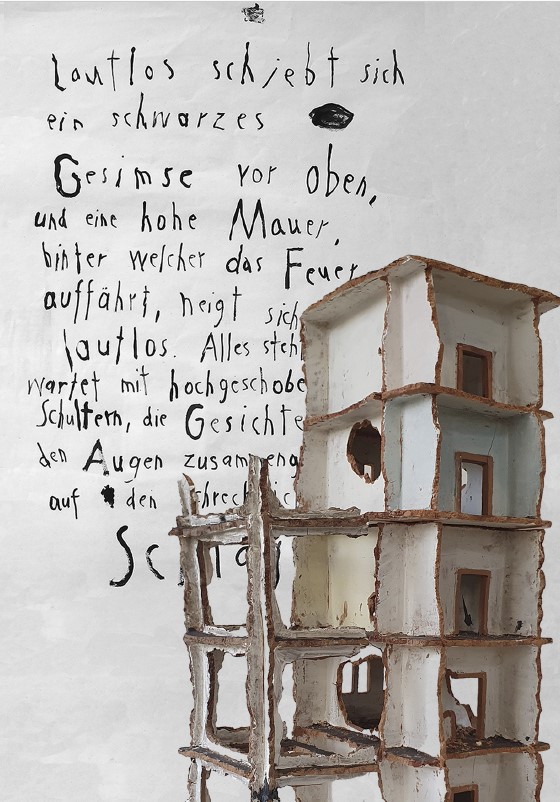 Lautlos schiebt sich
ein schwarzes
Gesimse vor oben,
und eine hohe Mauer,
hinter welcher das Feuer
auffährt, neigt sich
lautlos. Alles steh
wartet mit hochgeschobe
Schultern, die Gesichte
den Augen zusammeng
auf den schrecklic
Schlag